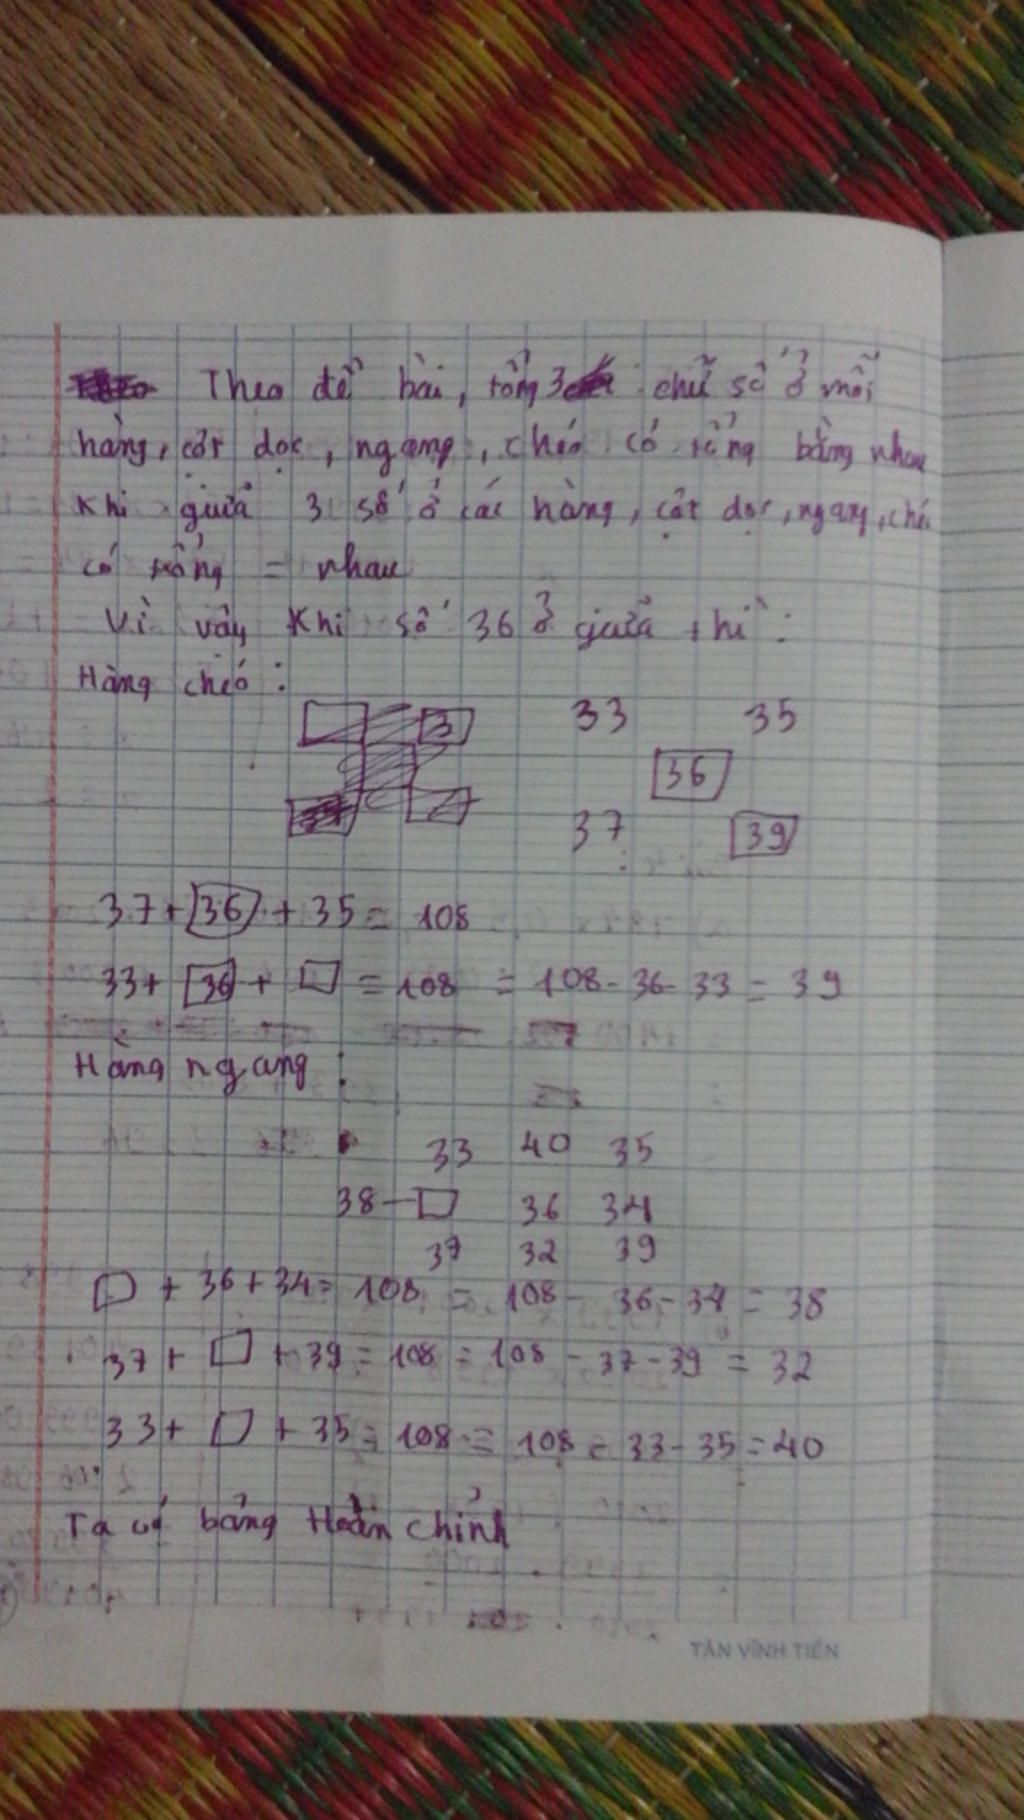 Theo đề bài, tổng 3 chữ số ở mỗi
hàng, cột dọc, ngang, chéo có tổng bằng nhau
Khi giữa 3 số ở các hàng, cột dọc, ngang, ché
có tổng = nhau
Vì vậy Khi số 36 ở giữa thì:
Hàng chéo:
33 35
36
37 39
37 + 36 + 35 = 108
33 + 36 + □ = 108 = 108 - 36 - 33 = 39
Hàng ngang:
33 40 35
38 - □ 36 34
37 32 39
□ + 36 + 34 = 108 = 108 - 36 - 34 = 38
37 + □ + 39 = 108 = 108 - 37 - 39 = 32
33 + □ + 35 = 108 = 108 - 33 - 35 = 40
Ta có bảng Hoàn chỉnh
TÂN VĨNH TIẾN